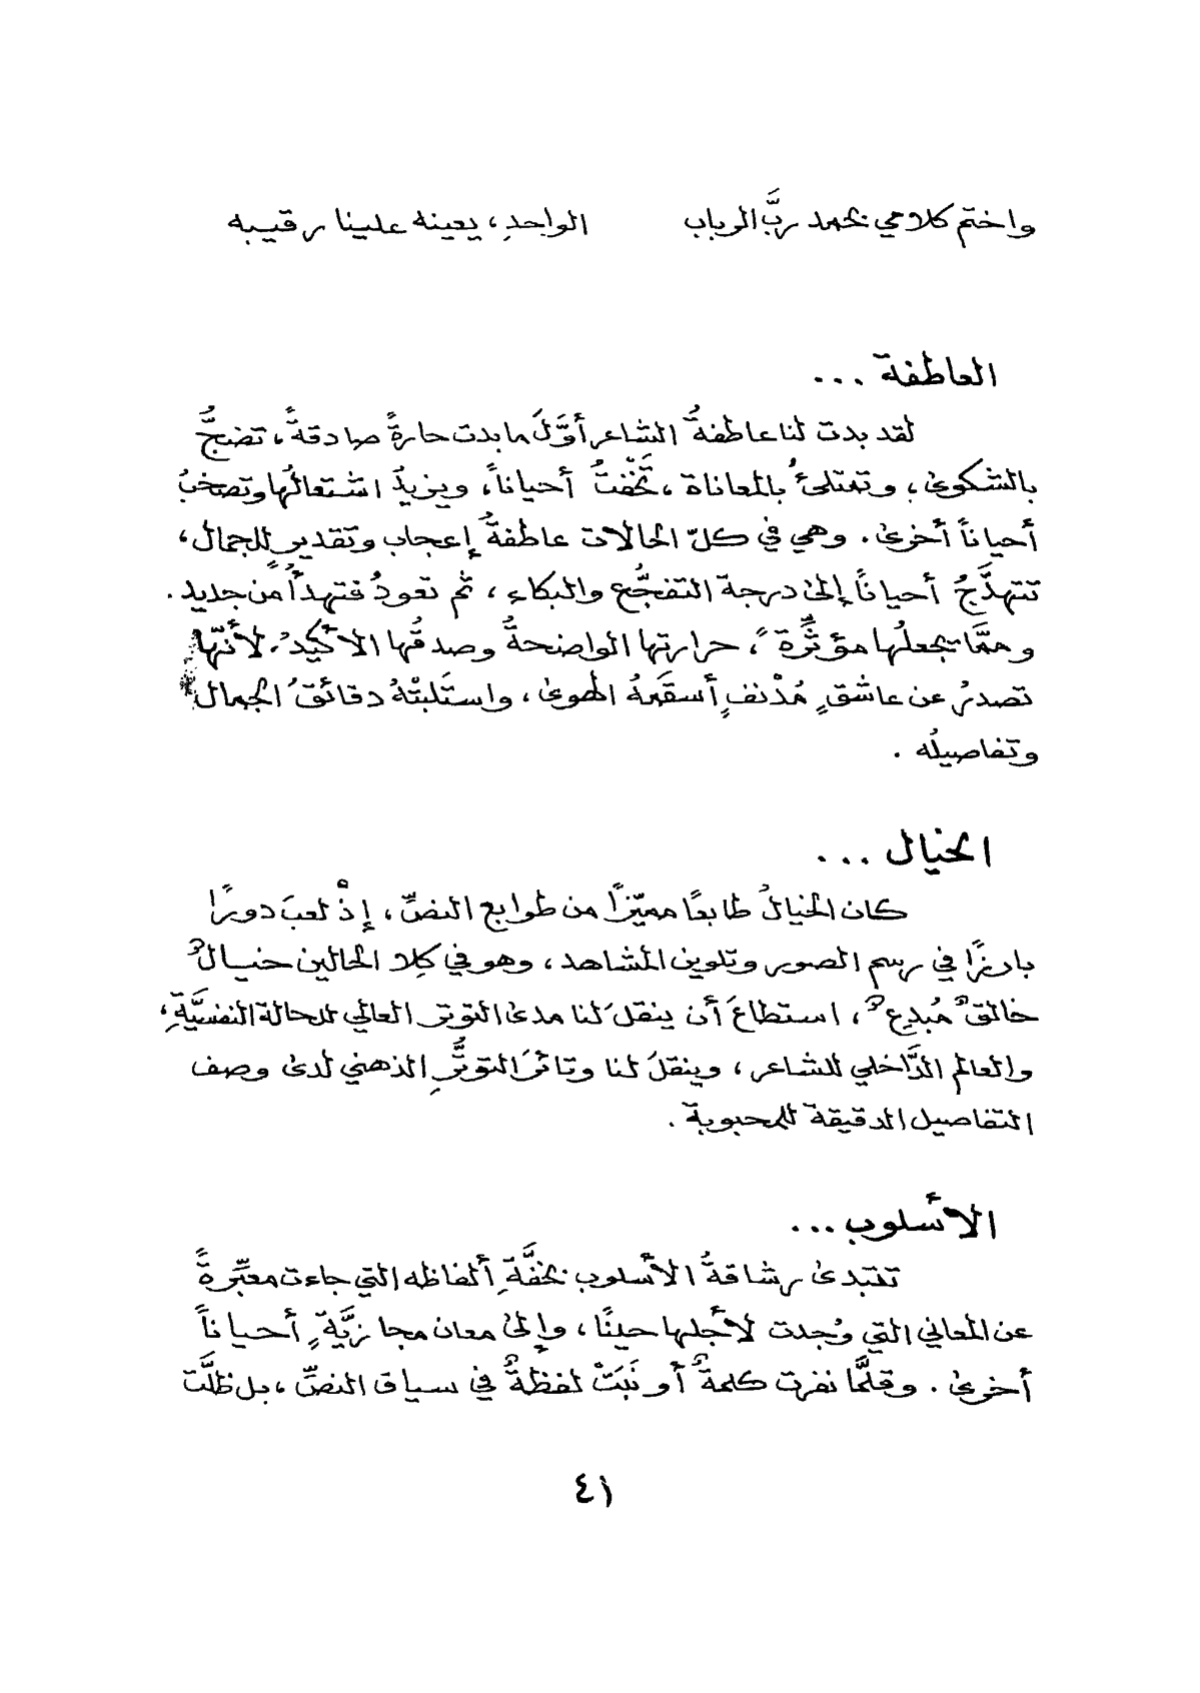 واختم كلامي بحمد ربَّ الرباب الواحدِ، يعينه علينا رقيبه
العاطفة ...
لقد بدت لنا عاطفةُ الشاعر أوَّلَ ما بدت حارةً صادقةً، تضجُّ
بالشكوى، وتمتلئُ بالمعاناة، تخْفتُ أحياناً، ويزيدُ اشتعالُها وتصخبُ
أحياناً أخرى. وهي في كلّ الحالات عاطفةُ إعجاب وتقديرٍ للجمال،
تتهدَّجُ أحياناً إلى درجة التفجُّع والبكاءِ، ثم تعودُ فتهدأُ من جديد.
وممَّا يجعلُها مؤثِّرةً، حرارتها الواضحةُ وصدقُها الأكيدُ، لأنّها
تصدرُ عن عاشقٍ مُدْنفٍ أسقَمهُ الهوى، واستَلبتْهُ دقائقُ الجمال
وتفاصيلُه .
الخيال ...
كان الخيالُ طابعًا مميّزًا من طوابع النصِّ، إذْ لعبَ دورًا
بارزًا في رسم الصور وتلوين المشاهد، وهو في كِلا الحالين خيالٌ
خالقٌ مُبدِعٌ، استطاعَ أن ينقلَ لنا مدى التوتر العالي للحالة النفسيَّةِ،
والعالم الدَّاخلي للشاعر، وينقلَ لنا وتائرَ التوتُّرِ الذهني لدى وصف
التفاصيل الدقيقة للمحبوبة .
الأسلوب ...
تتبدى رشاقةُ الأسلوب بخفَّةِ ألفاظه التي جاءت معبِّرةً
عن المعاني التي وُجدت لأجلها حينًا، وإلى معان مجازيَّةٍ أحياناً
أخرى . وقلَّما نفرت كلمةٌ أو نَبَتْ لفظةٌ في سياق النصِّ، بل ظلَّت
٤١